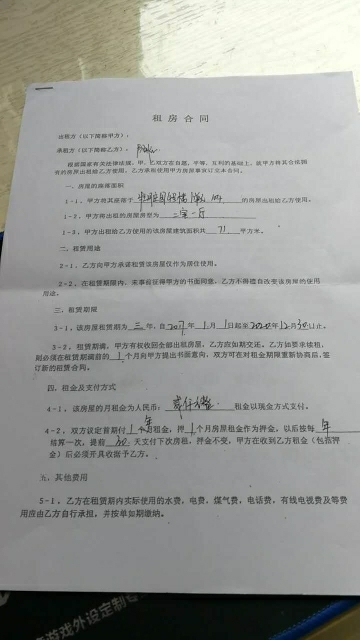 租房合同
出租方（以下简称甲方）：
承租方（以下简称乙方）：
根据国家有关法律法规，甲、乙双方在自愿，平等，互利的基础上，该甲方将其合法拥
有的房屋出租给乙方使用，乙方承租使用甲方房屋事宜订立本合同。
一．房屋的座落面积
1-1．甲方将其座落于 的房屋出租给乙方使用。
1-2．甲方将出租的房屋房型为 二室一厅
1-3．甲方出租给乙方使用的该房屋建筑面积共 71 平方米。
二．租赁用途
2-1．乙方向甲方承诺租赁该房屋仅作为居住使用。
2-2．在租赁期限内，未事前征得甲方的书面同意，乙方不得擅自改变该房屋的使用
用途。
三．租赁期限
3-1．该房屋租赁期为 三 年，自 2017 年 1 月 1 日起至 2020 年 12 月 30 日止。
3-2．租赁期满，甲方有权收回全部出租房屋，乙方应如期交还。乙方如要求续租，
则必须在租赁期满前的 1 个月向甲方提出书面意向，双方可在对租金期限重新协商后，签
订新的租赁合同。
四．租金及支付方式
4-1．该房屋的月租金为人民币： 贰仟 租金以现金方式支付。
4-2．双方议定首期付 1 年 个月租金，押 1 个月房屋租金作为押金，以后按每 年
结算一次，提前 30 天支付下次房租，押金不变，甲方在收到乙方租金（包括押
金）后必须开具收据予乙方。
五．其他费用
5-1．乙方在租赁期内实际使用的水费，电费，煤气费，电话费，有线电视费及等费
用应由乙方自行承担，并按单如期缴纳。
游戏外设定制